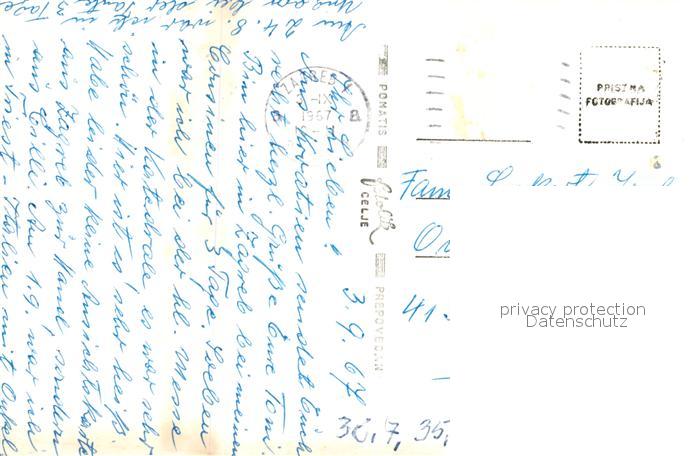 3.9.67
Ihr Lieben!
Aus Kroatien sendet Euch
recht herzl. Grüße Eure Toni.
Bin hier in Zagreb bei meinen
für 3 Tage. Soeben
war ich bei der hl. Messe
in der Kathedrale, es war sehr
schön. Hier ist es sehr heiß.
Habe leider keine Ansichtskarte
aus Zagreb zur Hand, sondern
aus Cilli. Am 1.9. war ich
in Triest - Italien mit Onkel
Am 24.8. war ich in
Ungarn bei der Tante 3 Tage
ZAGREB
IX
1967
a
PONATIS
CELJE
PREPOVEDAN
PRISTNA
FOTOGRAFIJA
Fam
41-
privacy protection
Datenschutz
7, 35,